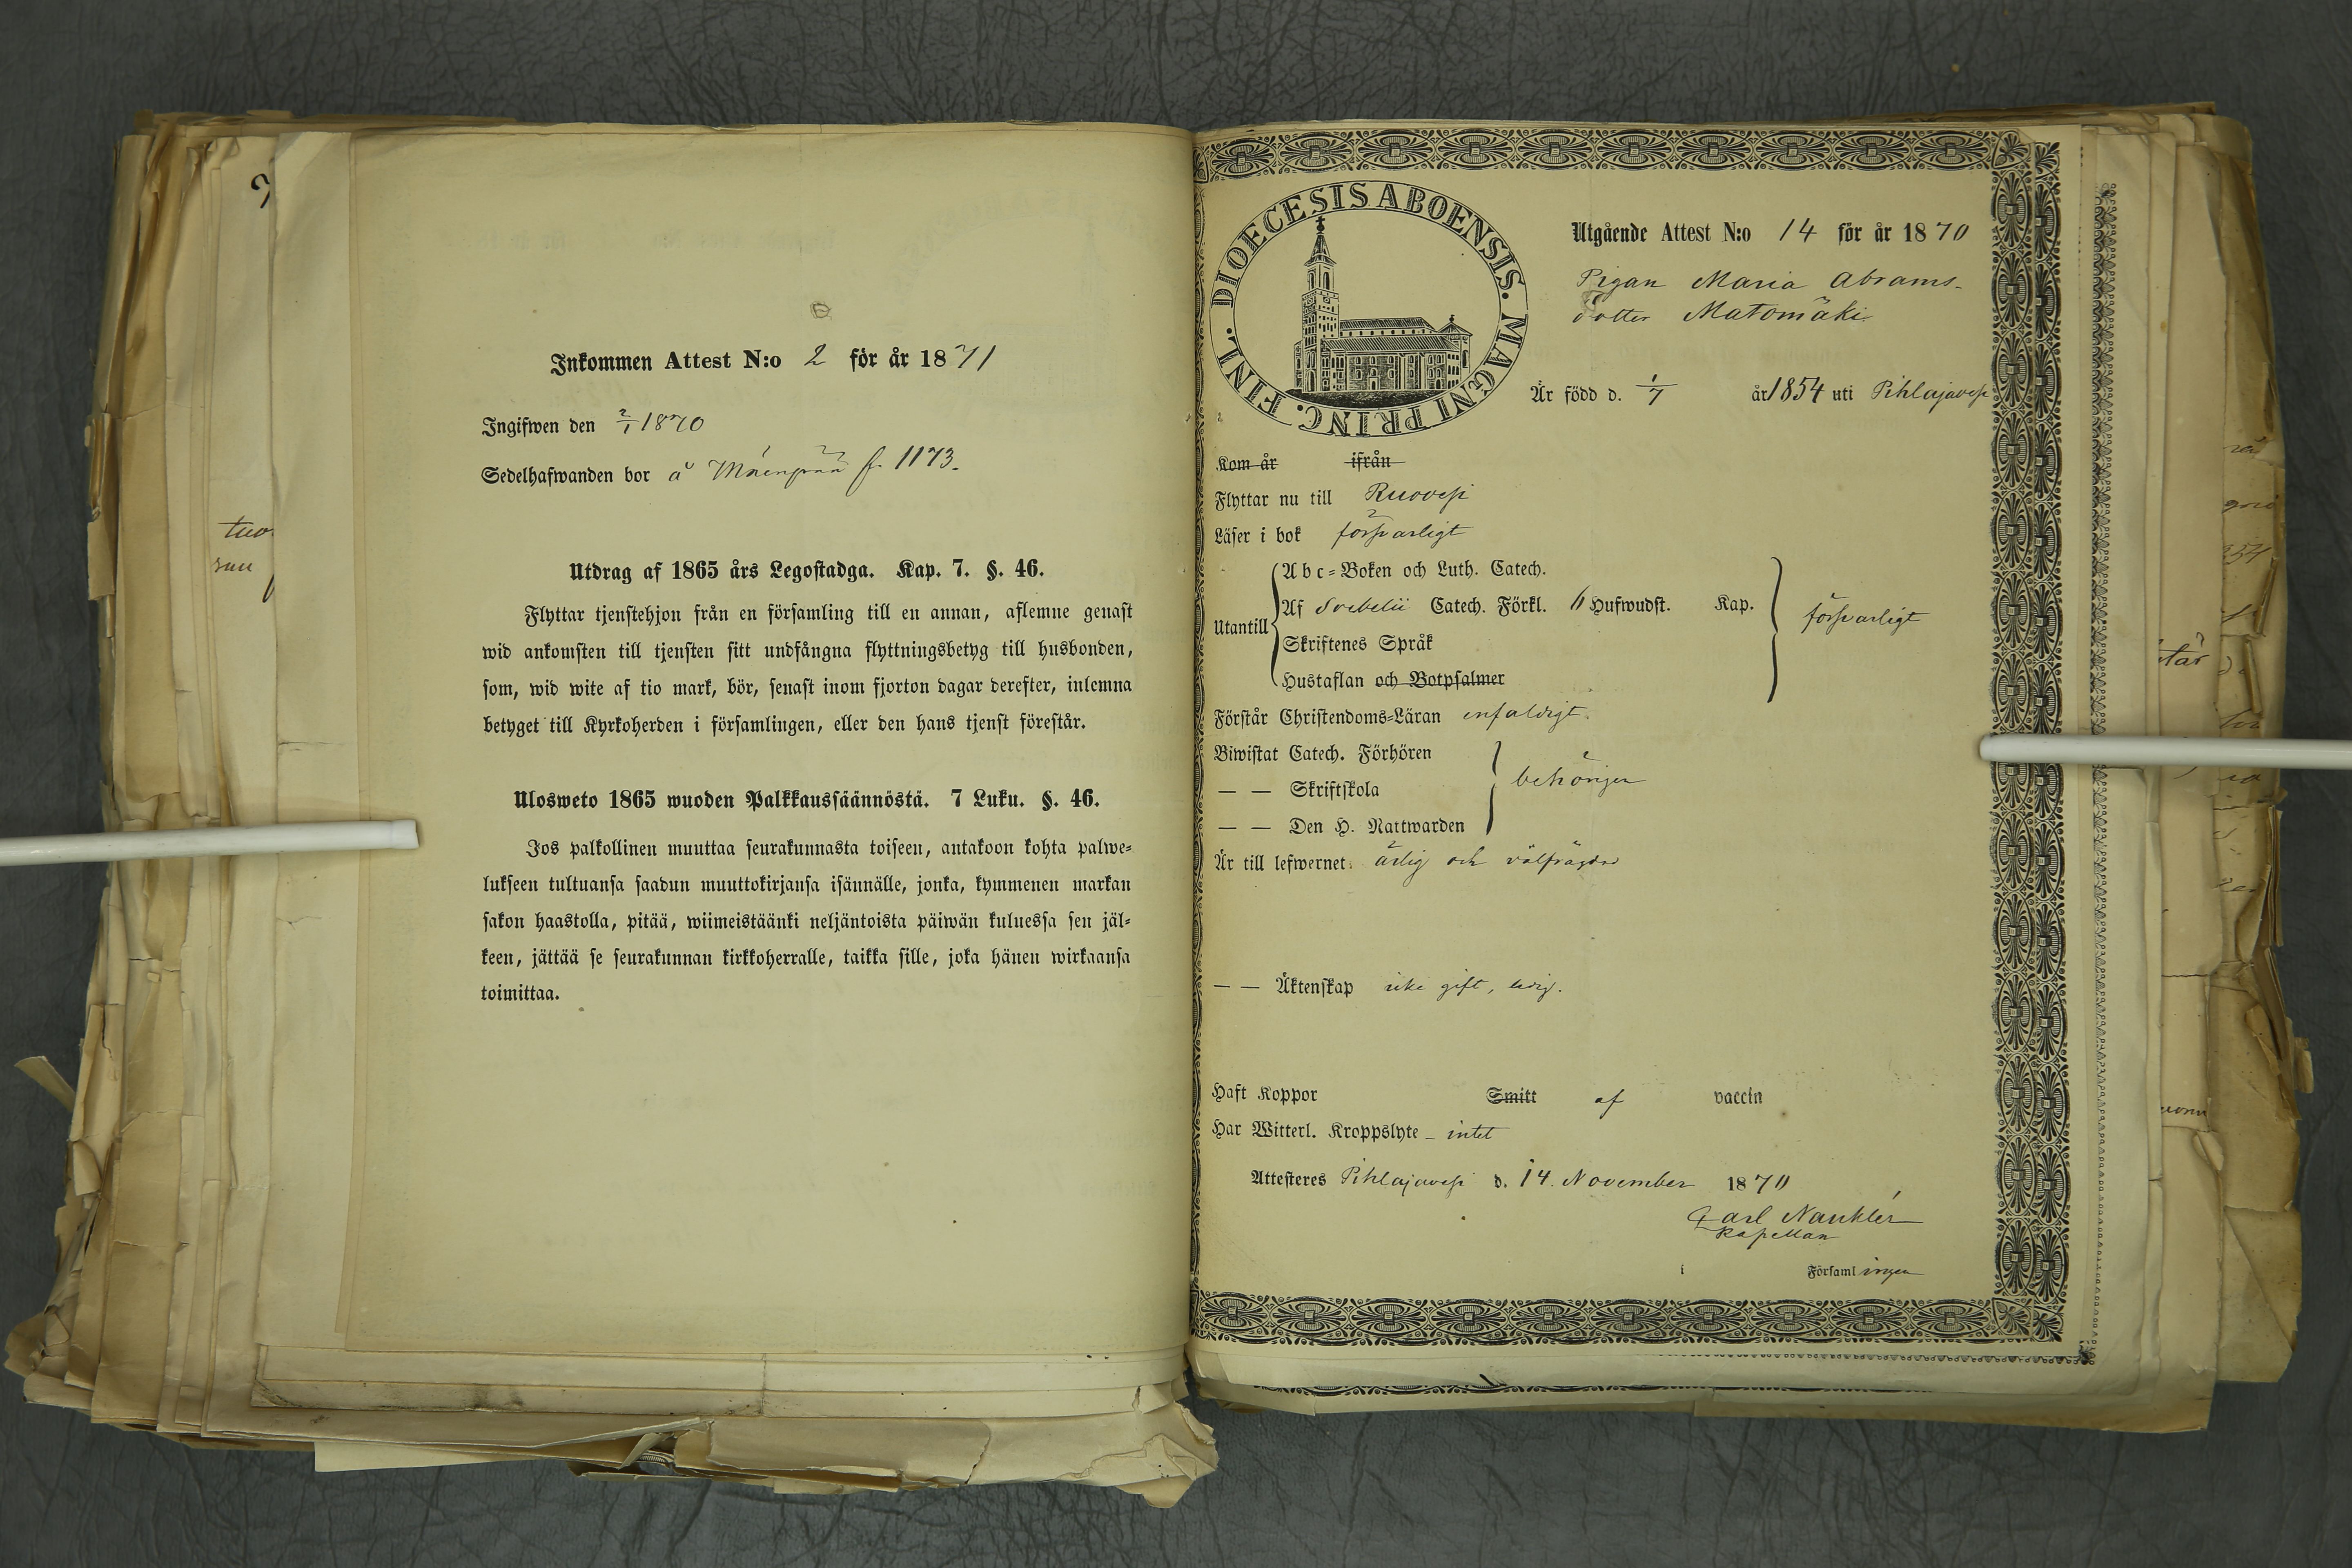 Inkommen Attest N:o 2 för år 1871
Ingifwen den 2/1 1870
Sedelhafwanden bor å 1173.
Utdrag af 1865 års Legostadga. Kap. 7. §. 46.
Flyttar tjenstehjon från en församling till en annan, aflemne genast
wid ankomsten till tjensten sitt undfångna flyttningsbetyg till husbonden,
som, wid wite af tio mark, bör, senast inom fjorton dagar derefter, inlemna
betyget till Kyrkoherden i församlingen, eller den hans tjenst förestår.
Ulosweto 1865 wuoden Palkkaussäännöstä. 7 Luku. §. 46.
Jos palkollinen muuttaa seurakunnasta toiseen, antakoon kohta palwe-
lukseen tultuansa saadun muuttokirjansa isännälle, jonka, kymmenen markan
sakon haastolla, pitää, wiimeistäänki neljäntoista päiwän kuluessa sen jäl-
keen, jättää se seurakunnan kirkkoherralle, taikka sille, joka hänen wirkaansa
toimittaa.
DIOECESIS ABOENSIS. MAGNI PRINC. FINL.
Utgående Attest N:o 14 för år 1870
Pigan Maria Abrams-
dotter Matomäki
Är född d. 1/7 år 1854 uti Pihlajavesi
Kom år ifrån
Flyttar nu till Ruovesi
Läser i bok försvarligt
Utantill
Abc-Boken och Luth. Catech.
Af Svebelii Catech. Förkl. 6 Hufwudst. Kap.
Skriftenes Språk
Hustaflan och Botpsalmer
försvarligt
Förstår Christendoms-Läran enfaldigt.
Biwistat Catech. Förhören
— — Skriftskola
— — Den H. Nattwarden
behörigen
Är till lefwernet: ärlig och välfrägdad
— — Äktenskap icke gift, ledig.
Haft Koppor Smitt af vaccin
Har Witterl. Kroppslyte - intet
Attesteres Pihlajavesi d. 14 November 1870
Carl Nauklér
Kapellan
i Församlingen